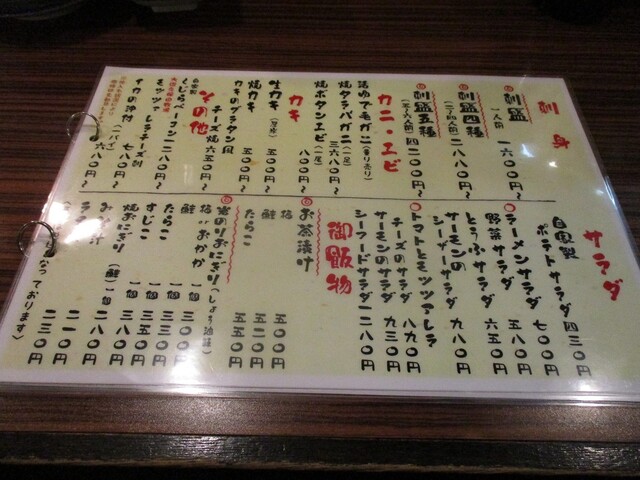 刺身
刺盛 一人前 一六〇〇円〜
刺盛四種 (二〜四人前) 二八八〇円〜
刺盛五種 (五〜六人前) 四二〇〇円〜
カニ・エビ
活ゆで毛がに (量り売り)
焼タラバガニ (一肩) 三六八〇円〜
焼ボタンエビ (一尾) 八〇〇円〜
カキ
生カキ
焼カキ 五〇〇円〜
カキのグラタン風 五〇〇円〜
その他
チーズ焼 六五〇円〜
くじらベーコン 一二八〇円〜
モッツァレラチーズ刺 七八〇円〜
イカの沖付 (一パイ) 六八〇円〜
サラダ
自家製
ポテトサラダ 四三〇円
ラーメンサラダ 七〇〇円
野菜サラダ 五八〇円
とうふサラダ 六五〇円
サーモンの
シーザーサラダ 九八〇円
トマトとモッツァレラ
チーズのサラダ 九八〇円
サーモンのサラダ 九三〇円
シーフードサラダ 一二八〇円
御飯物
お茶漬け
梅 五〇〇円
鮭 五二〇円
たらこ 五五〇円
岩のりおにぎり (しょうゆ油味)
梅・おかか 一個 三〇〇円
鮭 一個 三三〇円
たらこ 一個 三五〇円
すじこ 一個 三八〇円
焼おにぎり (鮭) 一個 二八〇円
みそ汁 二一〇円
二三〇円
っております)